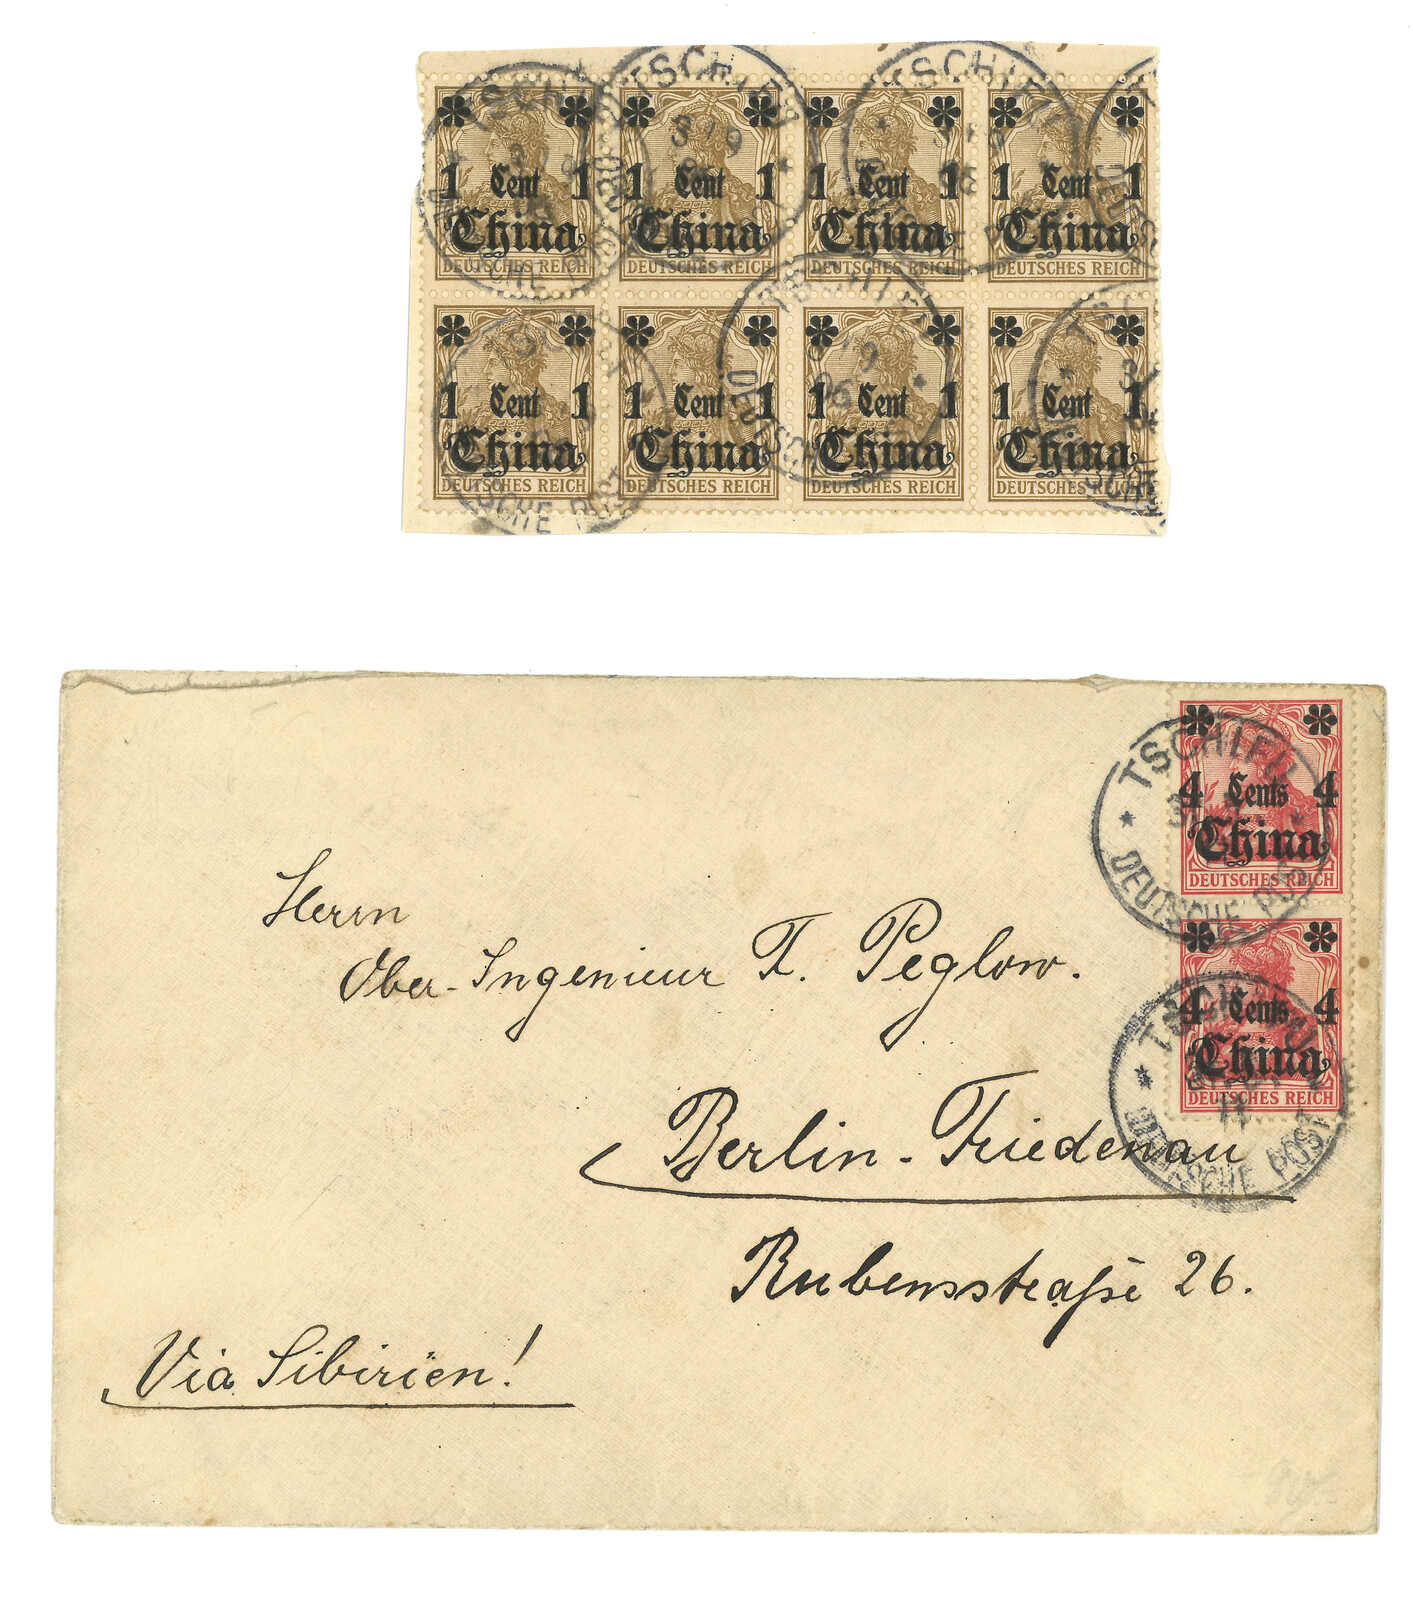 1 Cent 1 1 Cent 1 1 Cent 1 1 Cent 1
China China China China
DEUTSCHES REICH DEUTSCHES REICH DEUTSCHES REICH DEUTSCHES REICH
1 Cent 1 1 Cent 1 1 Cent 1 1 Cent 1
China China China China
DEUTSCHES REICH DEUTSCHES REICH DEUTSCHES REICH DEUTSCHES REICH
TSCHIFU
DEUTSCHE POST
4 Cents 4
China
DEUTSCHES REICH
4 Cents 4
China
DEUTSCHES REICH
TSCHIFU
DEUTSCHE POST
Herrn
Ober-Ingenieur F. Peglow.
Berlin-Friedenau
Rubensstraße 26.
Via Sibirien!